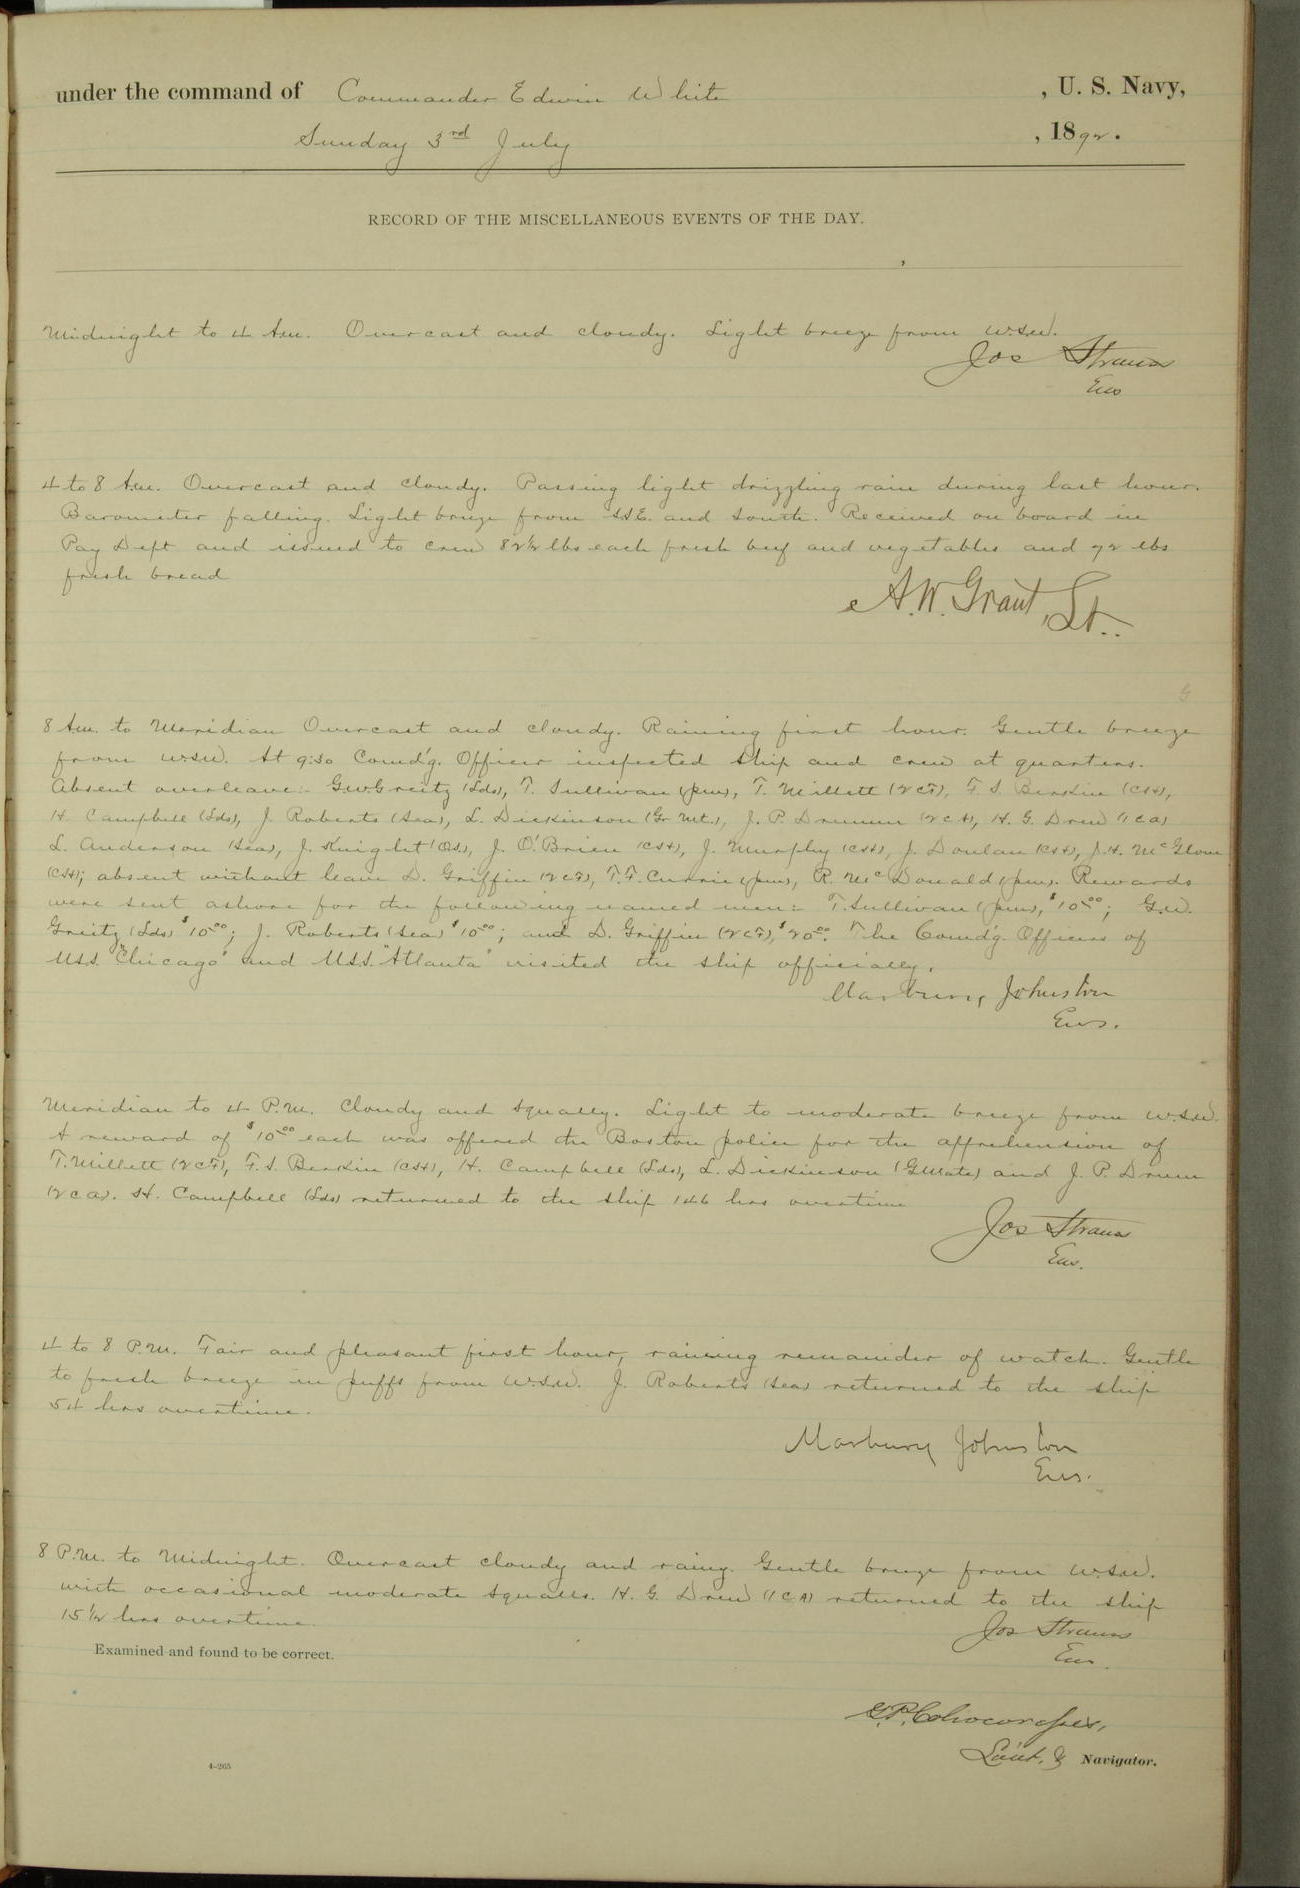 under the command of Commander Edwin White , U. S. Navy,
Sunday 3rd July , 1892.
RECORD OF THE MISCELLANEOUS EVENTS OF THE DAY.
Midnight to 4 A.m. Overcast and cloudy. Light breeze from W.S.W.
Jos Strauss
Ens
4 to 8 A.m. Overcast and cloudy. Passing light drizzling rain during last hour.
Barometer falling. Light breeze from SSE. and South. Received on board in
Pay Dept and issued to crew 82½ lbs each fresh beef and vegetables and 72 lbs
fresh bread
A.W. Grant, Lt.
8 A.m. to Meridian Overcast and cloudy. Raining first hour. Gentle breeze
from W.S.W. At 9:30 Comd'g. Officer inspected ship and crew at quarters.
Absent overleave:- G.W. Greitz (Lds), T. Sullivan (pm), T. Millett (2CF), F. S. Berskin (CSH),
H. Campbell (Lds), J. Roberts (Sea), L. Dickinson (Gr Mt.), J. P. Drumm (2CA), H. G. Drew (1CA)
L. Anderson (Sea), J. Knight (OS), J. O'Brien (CSH), J. Murphy (CSH), J. Donlan (CSH), J.H. McGlone
(CSH); absent without leave D. Griffin (2CF), T.F. Currie (pm), R. McDonald (pm). Rewards
were sent ashore for the following named men:- T. Sullivan (pm), $10.00; G.W.
Greitz (Lds) $10.00; J. Roberts (Sea) $10.00; and D. Griffin (2CF), $20.00. The Comd'g. Officers of
U.S.S. "Chicago" and U.S.S. "Atlanta" visited the ship officially.
Marbury Johnston
Ens.
Meridian to 4 P.M. Cloudy and squally. Light to moderate breeze from W.S.W.
A reward of $10.00 each was offered the Boston police for the apprehension of
T. Millett (2CF), F. S. Berskin (CSH), H. Campbell (Lds), L. Dickinson (G Mate) and J. P. Drum
(2CA). H. Campbell (Lds) returned to the ship 146 hrs overtime
Jos Strauss
Ens.
4 to 8 P.M. Fair and pleasant first hour, raining remainder of watch. Gentle
to fresh breeze in puffs from W.S.W. J. Roberts (Sea) returned to the ship
54 hrs overtime.
Marbury Johnston
Ens.
8 P.M. to Midnight. Overcast cloudy and rainy. Gentle breeze from W.S.W.
with occasional moderate squalls. H. G. Drew (1CA) returned to the ship
15½ hrs overtime.
Jos Strauss
Ens.
Examined and found to be correct.
G.P. Colvocoresses,
Lieut. & Navigator.
4-265